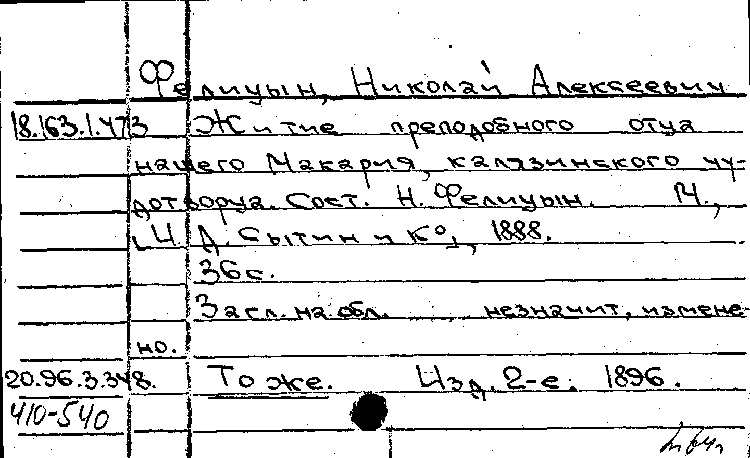 Фелицын, Николай Алексеевич
18.163.1.473 Житие преподобного отца
нашего Макария, калязинского чу-
дотворца. Сост. Н. Фелицын. М.,
И.Д. Сытин и К°, 1888.
36 с.
Загл. на обл. незначит. измене-
но.
20.96.3.348. То же. Изд. 2-е. 1896.
410-540